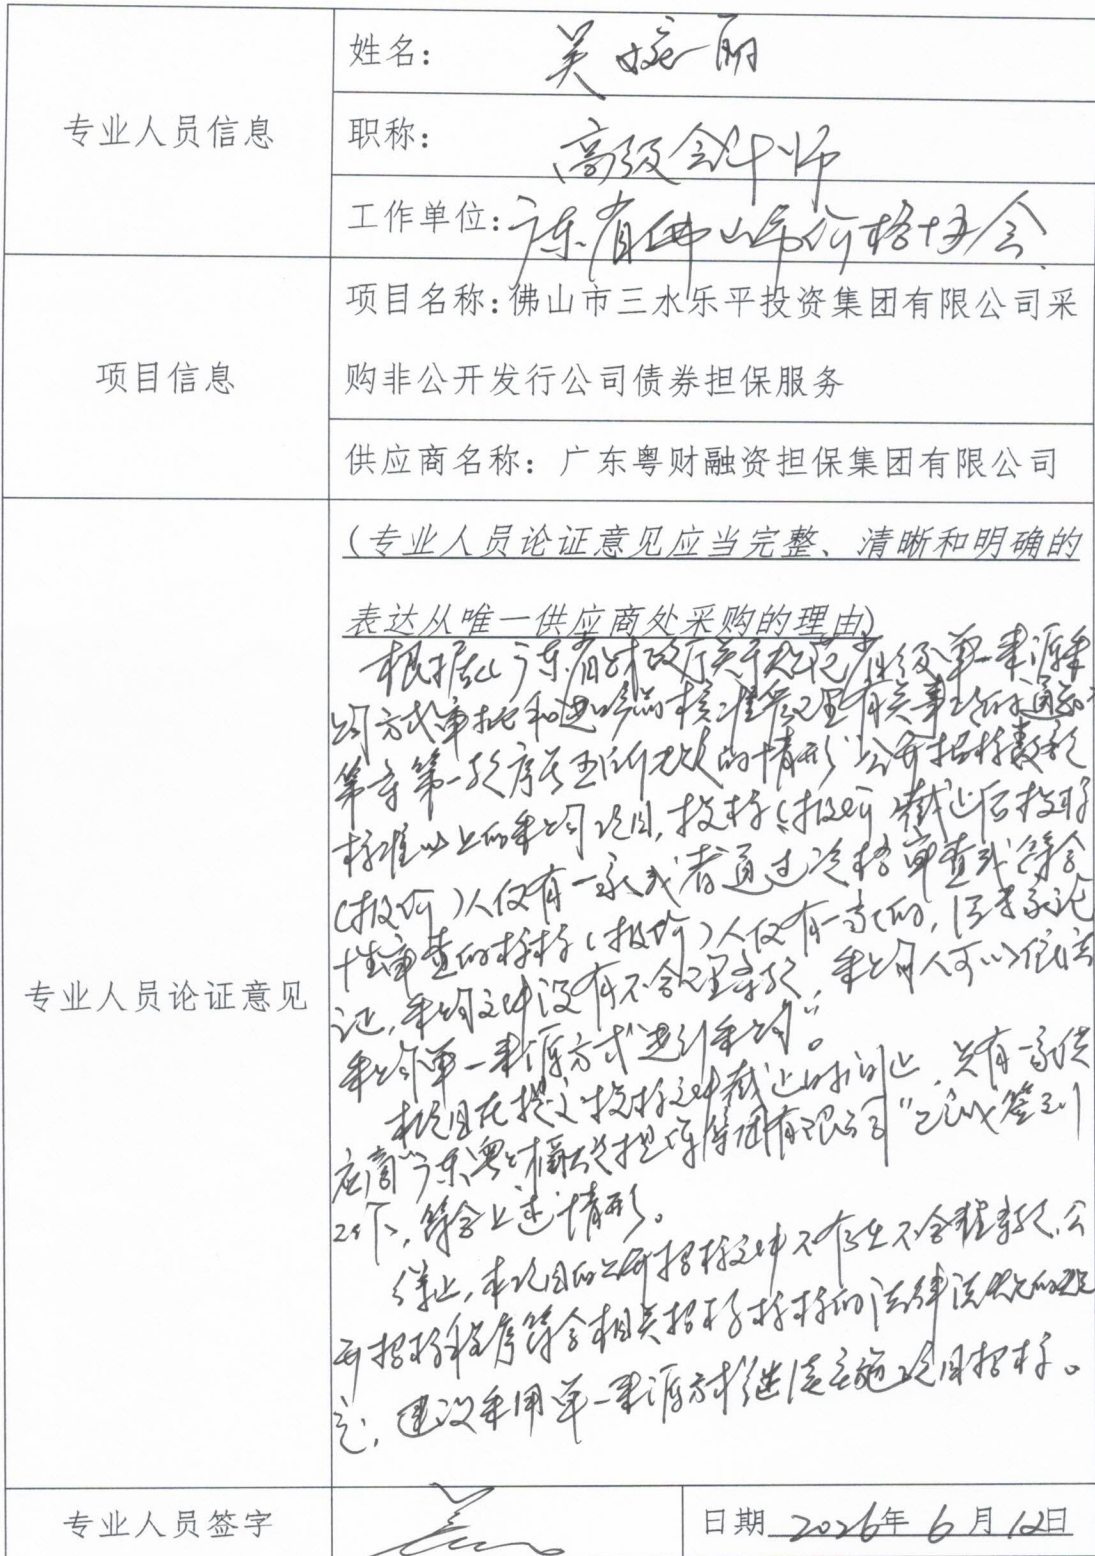 专业人员信息
姓名: 吴婉丽
职称: 高级会计师
工作单位: 广东省佛山市价格协会
项目信息
项目名称:佛山市三水乐平投资集团有限公司采
购非公开发行公司债券担保服务
供应商名称: 广东粤财融资担保集团有限公司
专业人员论证意见
(专业人员论证意见应当完整、清晰和明确的
表达从唯一供应商处采购的理由)
根据《广东省财政厅关于规范省级单一来源采
购方式审批和进口产品核准管理有关事项的通知》
第一款序号五所规定的情形“公开招标数额
标准以上的采购项目,投标(报价)截止后投标
(报价)人仅有一家或者通过资格审查或符合
性审查的投标(报价)人仅有一家的,经专家论
证,采购文件没有不合理条款,采购人可以依法
采购单一来源方式进行采购”。
本项目在提交投标文件截止时间止,只有一家供
应商“广东粤财融资担保集团有限公司”
,符合上述情形。
综上,本项目的公开招标文件不存在不合理条款,公
开招标程序符合相关招标投标的法律法规的规
定,建议采用单一来源方式继续实施项目招标。
专业人员签字
日期 2026年 6 月 12日